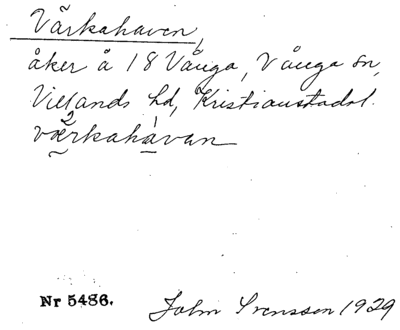 Värkahaven,
åker å 18 Vånga, Vånga sn,
Villands hd, Kristianstads l.
værkahavan
Nr 5486. John Svensson 1929